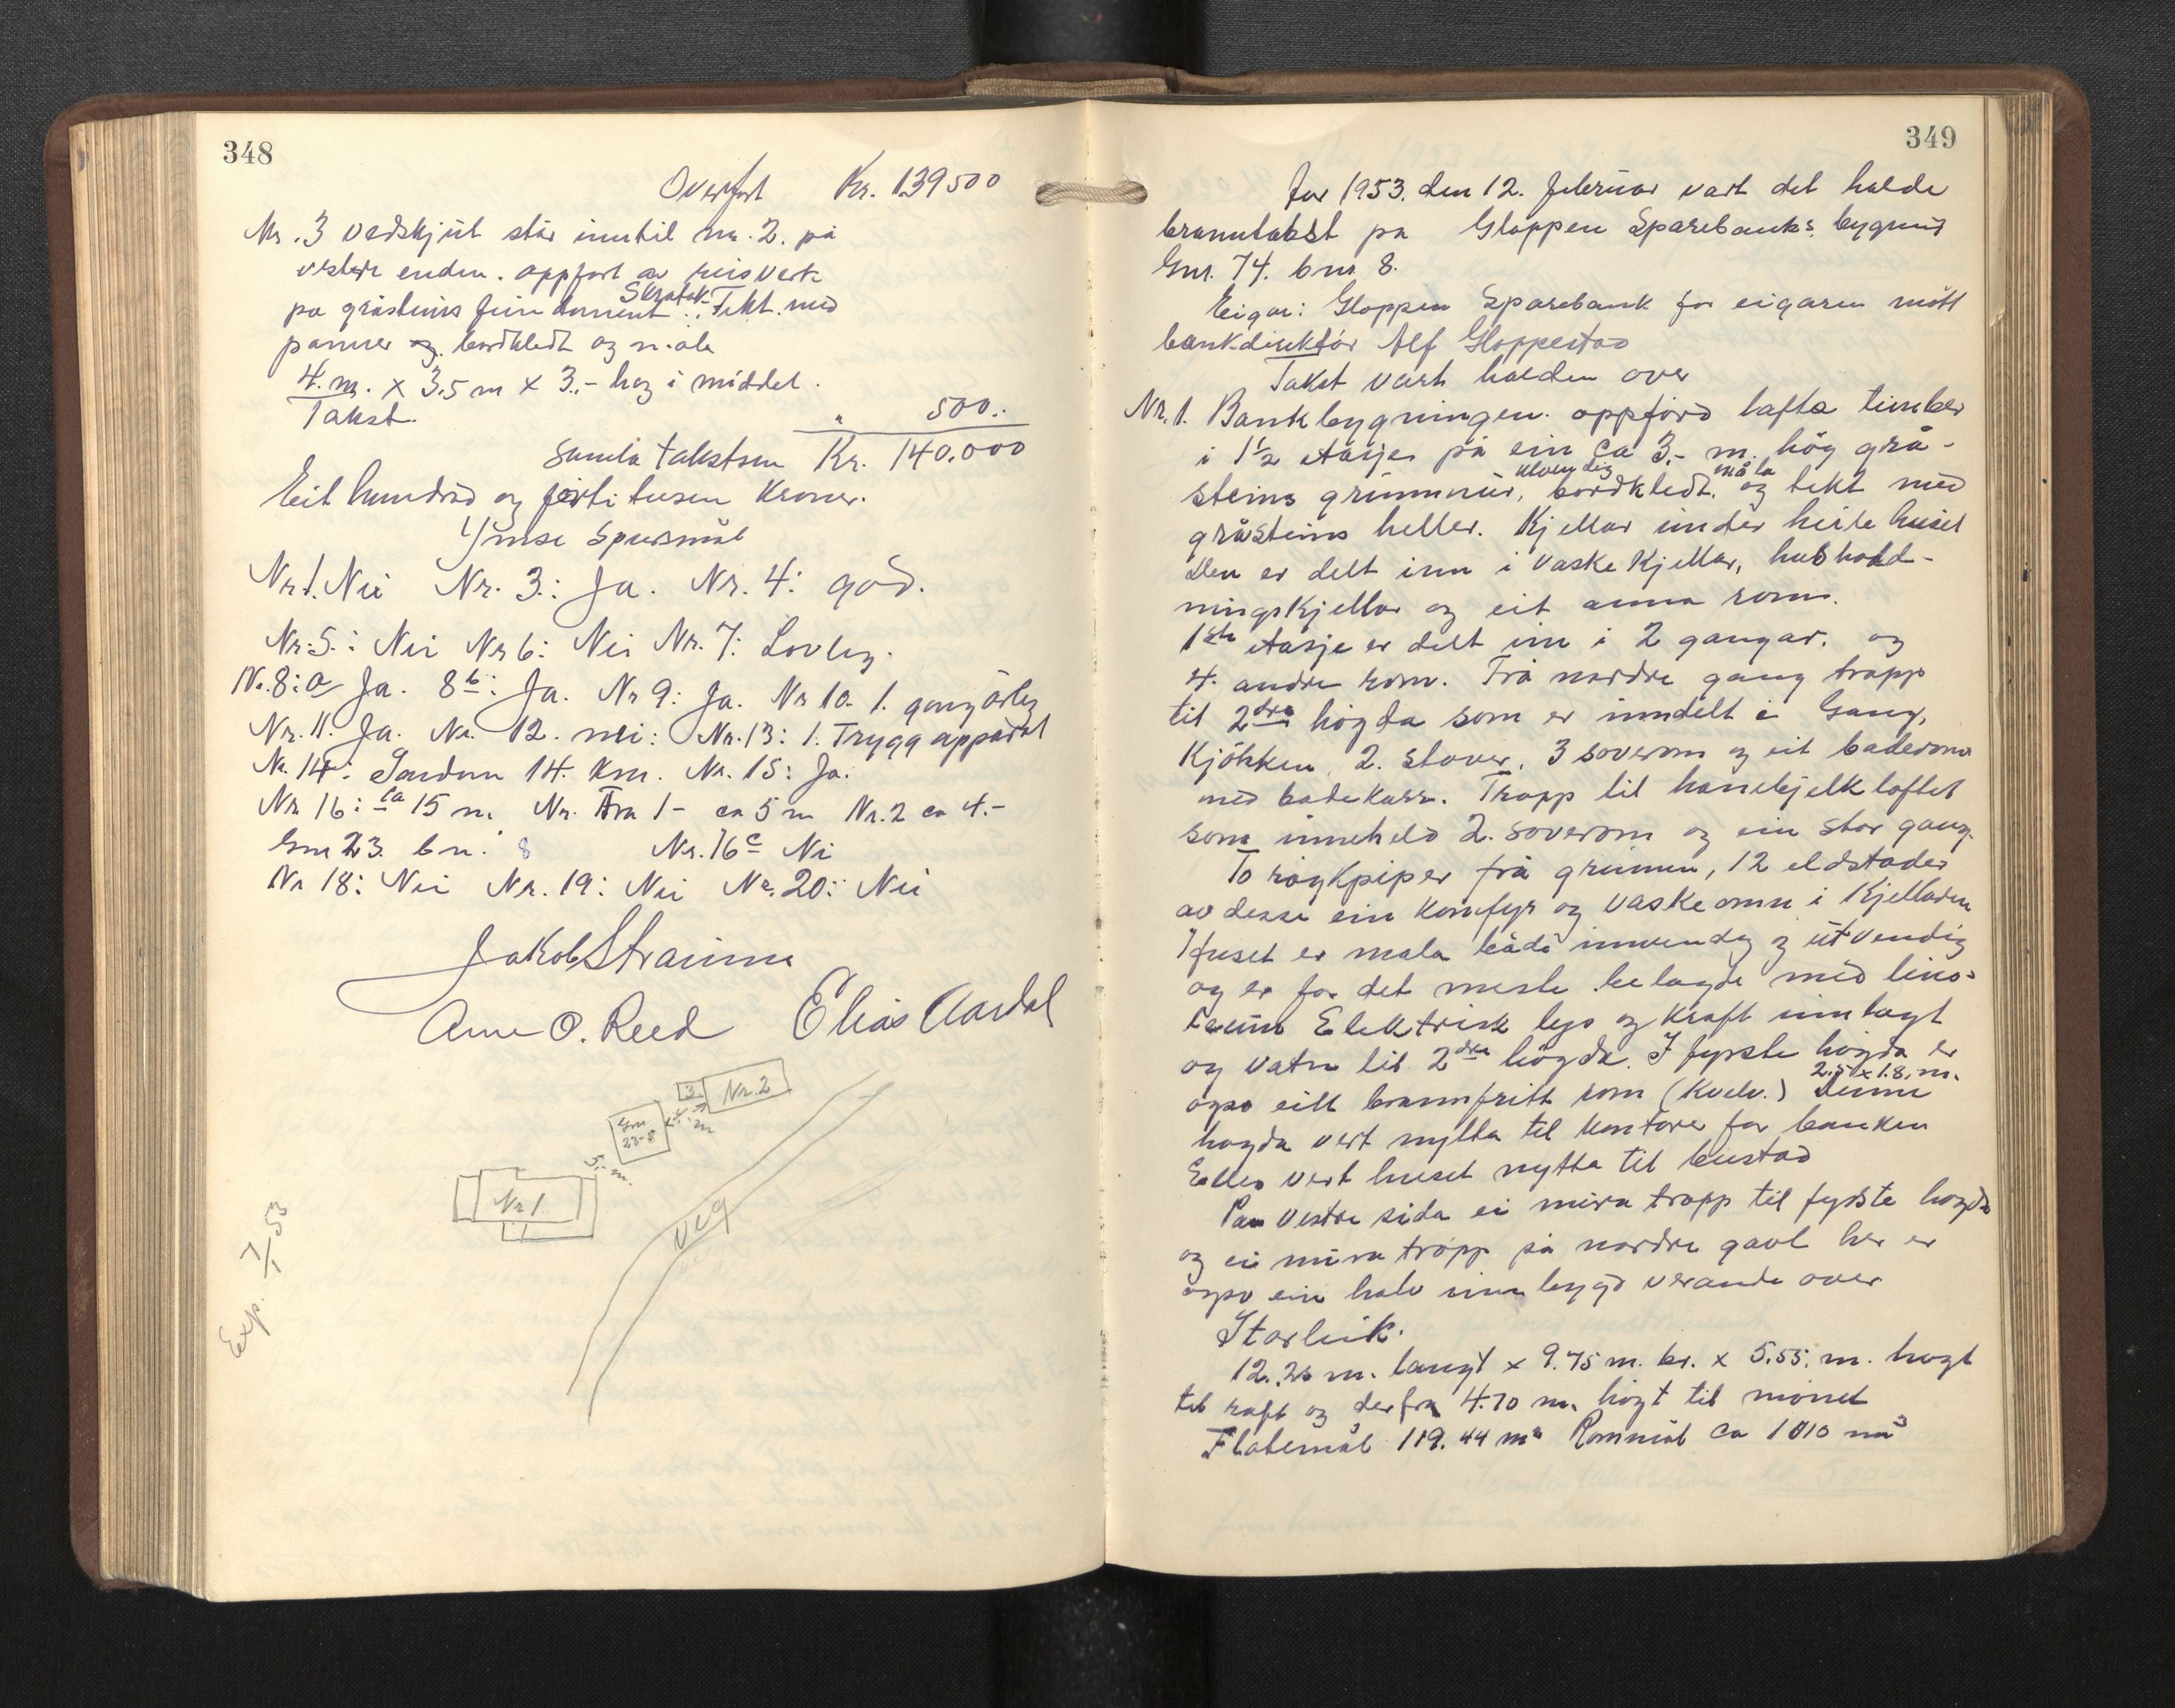 348
Overført Kr. 139500
Nr. 3 vedskjul står inntil nr. 2. på
vestre enden. oppført av reisverk
på gråsteins fundament. Skratak. Tekt med
panner og bordkledt og mala
4. m. x 3.5 m x 3.- høg i middel.
Takst. " 500.-
Samla takstsum Kr. 140.000
Eit hundrad og førti tusen kroner.
Ymse Spursmål
Nr. 1. Nei Nr. 3.: Ja. Nr. 4: god.
Nr: 5.: Nei Nr 6: Nei Nr. 7: Lovleg.
Nr. 8: a Ja. 8b: Ja. Nr 9: Ja. Nr 10. 1. gong årleg
Nr. 11. Ja. Nr. 12. nei: Nr. 13: 1. Trygg apparat
Nr. 14: Sandane 14. km. Nr. 15: Ja.
Nr 16: ca 15 m. Nr. Fra 1- ca 5 m Nr. 2 ca 4.-
Gnr 23. bn. 8 Nr. 16c Nei
Nr 18: Nei Nr. 19: Nei Nr. 20: Nei
Jakob Straume
Arne O. Reed Elias Aardal
3. Nr. 2
Gnr.
23-8
4.- m
5.- m.
Nr 1
Veg
Exp. 7/1 53
349
År 1953. den 12. februar vart det halde
branntakst på Gloppen Sparebanks. bygning
Gnr. 74. bnr 8.
Eigar: Gloppen Sparebank for eigaren møtt
bankdirektør Alf Gloppestad
Takst vart halden over
Nr. 1. Bankbygningen. oppførd lafta timber
i 1 1/2 etasje på ein ca 3.- m. høg grå-
steins grunnmur, utvendig bordkledt. måla og tekt med
gråsteins heller. Kjellar under heile huset
den er delt inn i vaskekjellar, hushold-
ningskjellar og eit anna rom.
1ste etasje er delt inn i 2 gangar. og
4. andre rom. Frå nordre gang trapp
til 2dre høgda som er inndelt i Gang,
Kjökken, 2. stover, 3 soverom og eit baderom
med badekarr. Trapp til hanebjelkloftet
som inneheld 2. soverom og ein stor gang.
To røykpiper frå grunnen, 12 eldstader
av desse ein komfyr og vaskeomn i kjellaren
Huset er mala både innvendig og utvendig
og er for det meste belagde med lino-
leum Elektrisk lys og kraft innlagt
og vatn til 2dre høgda. I fyrste høgda er
ogso eitt brannfritt rom (kvelv.) 2.5 x 1.8. m. Denne
høgda vert nytta til kontorer for banken
Elles vert huset nytta til bustad
Paa vestre sida ei mura trapp til fyrste høgda
og ei mura trapp på nordre gavl her er
ogso ein halv innbygd veranda over
Storleik.
12.25 m. langt x 9.75 m. br. x 5.55. m. høgt
til raft og derfra 4.70 m. høgt til mønet
Flatemål 119.44 m² Rommål ca 1010 m³